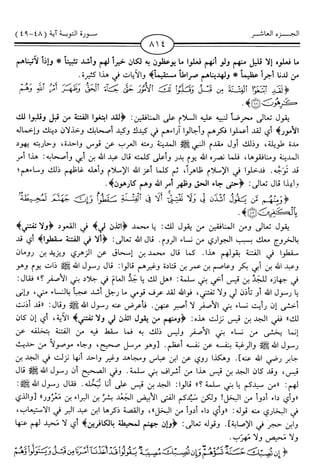 الجـزء العاشـر
٨١٤
سورة التوبة آية (٤٨-٤٩)
ما فعلوه إلا قليل منهم ولو أنهم فعلوا ما يوعظون به لكان خيراً لهم وأشد تثبيتاً * وإذاً لآتيناهم
من لدنا أجراً عظيماً * ولهديناهم صراطاً مستقيماً﴾ والآيات في هذا كثيرة.
﴿لَقَدِ ابْتَغَوُا الْفِتْنَةَ مِن قَبْلُ وَقَلَّبُوا لَكَ الْأُمُورَ حَتَّىٰ جَاءَ الْحَقُّ وَظَهَرَ أَمْرُ اللَّهِ وَهُمْ
كَارِهُونَ﴾
يقول تعالى محرضاً لنبيه عليه السلام على المنافقين: ﴿لقد ابتغوا الفتنة من قبل وقلبوا لك
الأمور﴾ أي لقد أعملوا فكرهم وأجالوا آراءهم في كيدك وكيد أصحابك وخذلان دينك وإخماله
مدة طويلة، وذلك أول مقدم النبي ﷺ المدينة رمته العرب عن قوس واحدة، وحاربته يهود
المدينة ومنافقوها، فلما نصره الله يوم بدر وأعلى كلمته قال عبد الله بن أبي وأصحابه: هذا أمر
قد توجّه. فدخلوا في الإسلام ظاهراً، ثم كلما أعز الله الإسلام وأهله غاظهم ذلك وساءهم؛
ولهذا قال تعالى: ﴿حتى جاء الحق وظهر أمر الله وهم كارهون﴾.
﴿وَمِنْهُم مَّن يَقُولُ ائْذَن لِّي وَلَا تَفْتِنِّي أَلَا فِي الْفِتْنَةِ سَقَطُوا وَإِنَّ جَهَنَّمَ لَمُحِيطَةٌ
بِالْكَافِرِينَ﴾
يقول تعالى ومن المنافقين من يقول لك: يا محمد ﴿ائذن لي﴾ في القعود ﴿ولا تفتني﴾
بالخروج معك بسبب الجواري من نساء الروم. قال الله تعالى: ﴿ألا في الفتنة سقطوا﴾ أي قد
سقطوا في الفتنة بقولهم هذا. كما قال محمد بن إسحاق عن الزهري ويزيد بن رومان
وعبد الله بن أبي بكر وعاصم بن عمر بن قتادة وغيرهم قالوا: قال رسول الله ﷺ ذات يوم وهو
في جهازه للجَدّ بن قيس أخي بني سلمة: «هل لك يا جَدُّ العامَ في جلاد بني الأصفر ؟» فقال:
يا رسول الله أو تأذن لي ولا تفتني، فوالله لقد عرف قومي ما رجل أشد عجباً بالنساء مني، وإني
أخشى إن رأيت نساء بني الأصفر لا أصبر عنهن. فأعرض عنه رسول الله ﷺ وقال: «قد أذنت
لك» ففي الجد بن قيس نزلت هذه: ﴿ومنهم من يقول ائذن لي ولا تفتني﴾ الآية، أي إن كان
إنما يخشى من نساء بني الأصفر وليس ذلك به فما سقط فيه من الفتنة بتخلفه عن
رسول الله ﷺ والرغبة بنفسه عن نفسه أعظم.
جابر رضي الله عنه]. وهكذا روي عن ابن عباس ومجاهد وغير واحد أنها نزلت في الجد بن
قيس، وقد كان الجد بن قيس هذا من أشراف بني سلمة. وفي الصحيح أن رسول الله ﷺ قال
لهم: «من سيدكم يا بني سلمة ؟» قالوا: الجد بن قيس على أنا نُبَخِّله. فقال رسول الله ﷺ:
«وأي داء أدوأ من البخل! ولكن سيّدكم الفتى الأبيض الجَعْد بشرُ بن البراء بن مَعْرُور» [والذي
في البخاري منه قوله: «وأي داء أدوأ من البخل»، والقصة ذكرها ابن عبد البر في الاستيعاب،
وابن حجر في الإصابة]. وقوله تعالى: ﴿وإن جهنم لمحيطة بالكافرين﴾ أي لا محيد لهم عنها
ولا مَحيص ولا مَهرَب.
﴿إِن تُصِبْكَ حَسَنَةٌ تَسُؤْهُمْ وَإِن تُصِبْكَ مُصِيبَةٌ يَقُولُوا قَدْ أَخَذْنَا أَمْرَنَا مِن قَبْلُ وَيَتَوَلَّوا وَّهُمْ